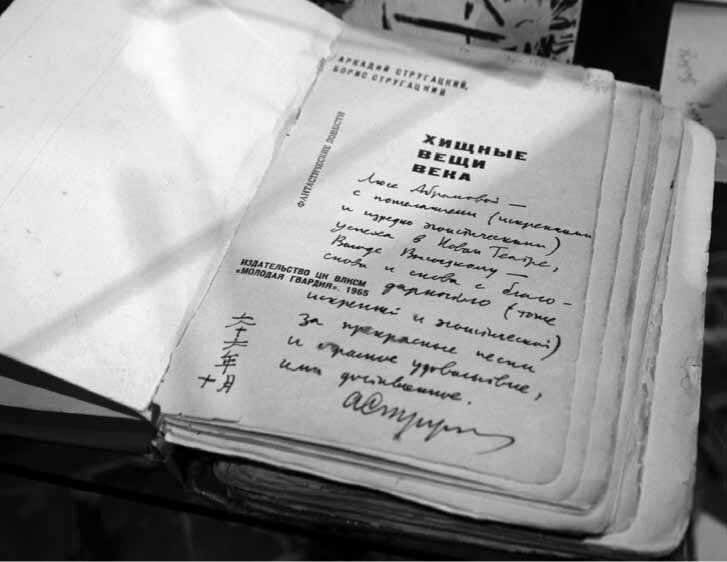 АРКАДИЙ СТРУГАЦКИЙ,
БОРИС СТРУГАЦКИЙ
ФАНТАСТИЧЕСКИЕ ПОВЕСТИ
ХИЩНЫЕ
ВЕЩИ
ВЕКА
Люсе Абрамовой —
с пожеланиями (искренними
и изредко эгоистическими)
успеха в Новом Театре,
Володе Высоцкому —
снова и снова с благо-
дарностью (тоже
искренней и эгоистической)
за прекрасные песни
и огромное удовольствие,
ими доставленное.
АСтругацкий
ИЗДАТЕЛЬСТВО ЦК ВЛКСМ
«МОЛОДАЯ ГВАРДИЯ». 1965
六十六年
十月